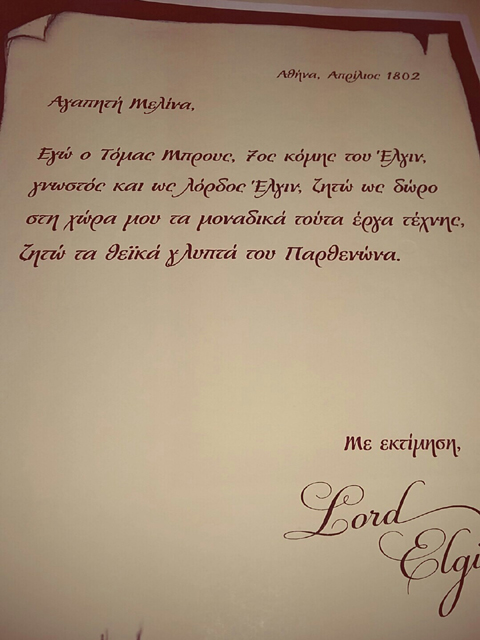 Αθήνα, Απρίλιος 1802
Αγαπητή Μελίνα,
Εγώ ο Τόμας Μπρους, 7ος κόμης του Έλγιν,
γνωστός και ως λόρδος Έλγιν, ζητώ ως δώρο
στη χώρα μου τα μοναδικά τούτα έργα τέχνης,
ζητώ τα θεϊκά γλυπτά του Παρθενώνα.
Με εκτίμηση,
Lord
Elgi